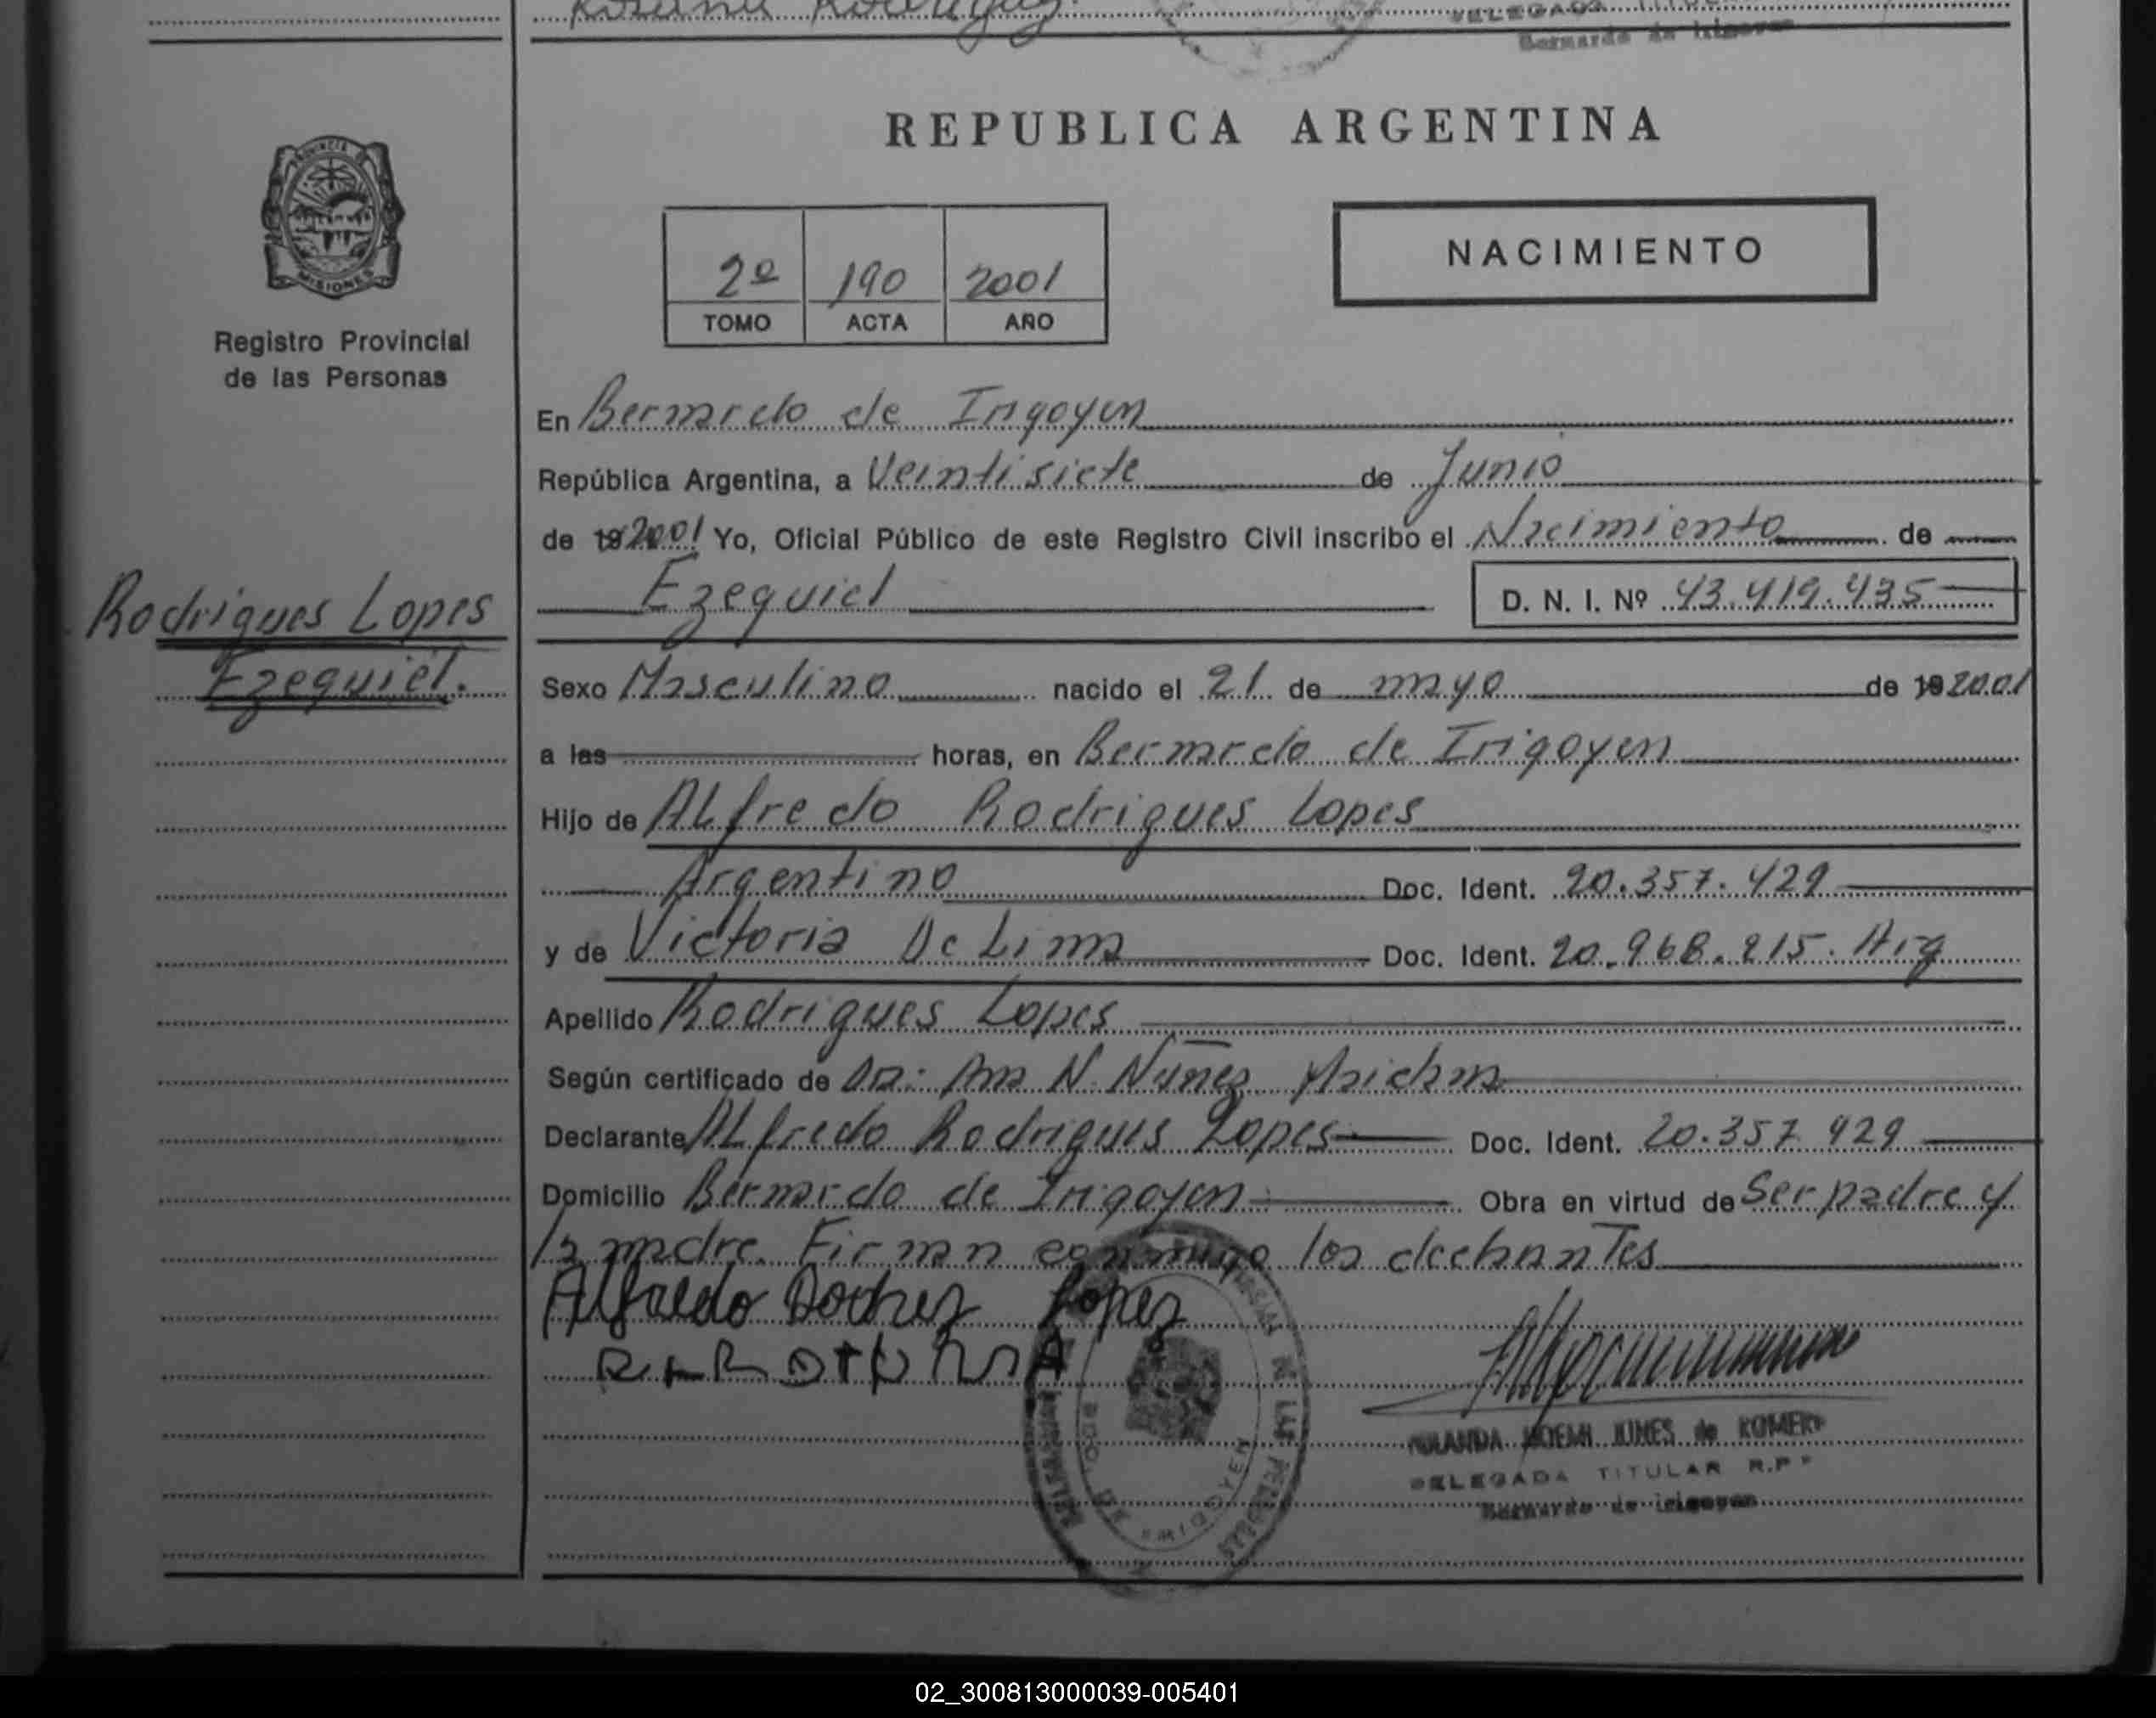 Rosana Rodriguez
DELEGADA TITULAR
Bernardo de Irigoyen
REPUBLICA ARGENTINA
PROVINCIA DE
MISIONES
Registro Provincial
de las Personas
2º 190 2001
TOMO ACTA AÑO
NACIMIENTO
En Bernardo de Irigoyen
República Argentina, a Veintisiete de Junio
de 19 2001 Yo, Oficial Público de este Registro Civil inscribo el Nacimiento de
Ezequiel D. N. I. Nº 43.419.435
Rodrigues Lopes
Ezequiel.
Sexo Masculino nacido el 21 de mayo de 19 2001
a las horas, en Bernardo de Irigoyen
Hijo de Alfredo Rodrigues Lopes
Argentino Doc. Ident. 20.357.429
y de Victoria De Lima Doc. Ident. 20.968.215. Arg
Apellido Rodrigues Lopes
Según certificado de Dra: Ana N. Nuñez
Declarante Alfredo Rodrigues Lopes Doc. Ident. 20.357.429
Domicilio Bernardo de Irigoyen Obra en virtud de Ser padre y
la madre. Firman conmigo los
Alfredo Lopez
DELEGADA TITULAR R.P.P
Bernardo de Irigoyen
02_300813000039-005401